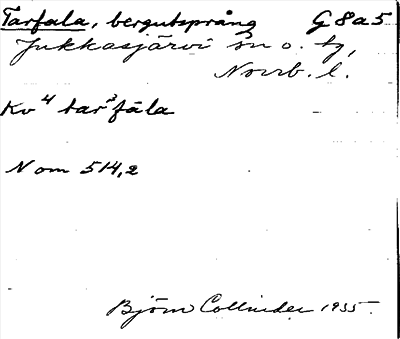 Tarfala, bergutsprång G8a5
Jukkasjärvi sn o. tg,
Norrb. l.
Kv⁴ tar²fála
N om 514,2
Björn Collinder 1955.